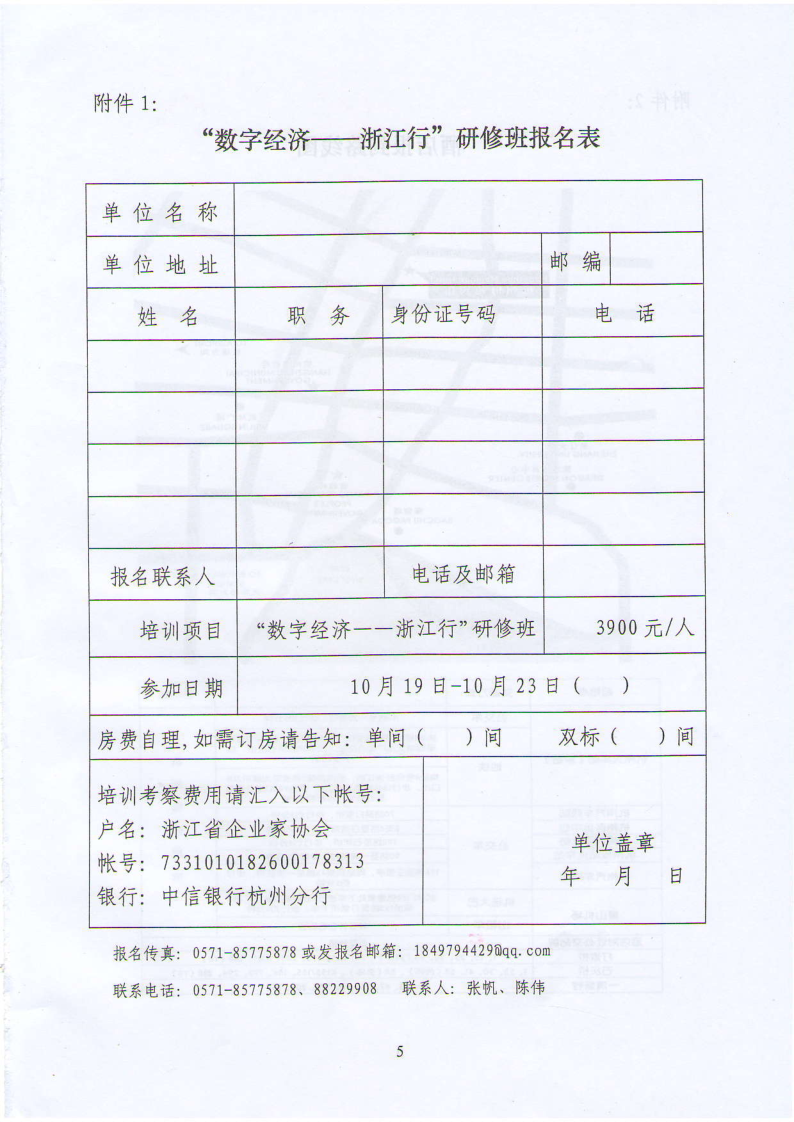 附件 1:
“数字经济——浙江行”研修班报名表
单位名称
单位地址 邮编
姓名 职务 身份证号码 电话
报名联系人 电话及邮箱
培训项目 “数字经济——浙江行”研修班 3900 元/人
参加日期 10 月 19 日-10 月 23 日 ( )
房费自理,如需订房请告知: 单间 ( ) 间 双标 ( ) 间
培训考察费用请汇入以下帐号:
户名: 浙江省企业家协会
帐号: 7331010182600178313
银行: 中信银行杭州分行
单位盖章
年 月 日
报名传真: 0571-85775878 或发报名邮箱: 1849794429@qq.com
联系电话: 0571-85775878、88229908 联系人: 张帆、陈伟
5